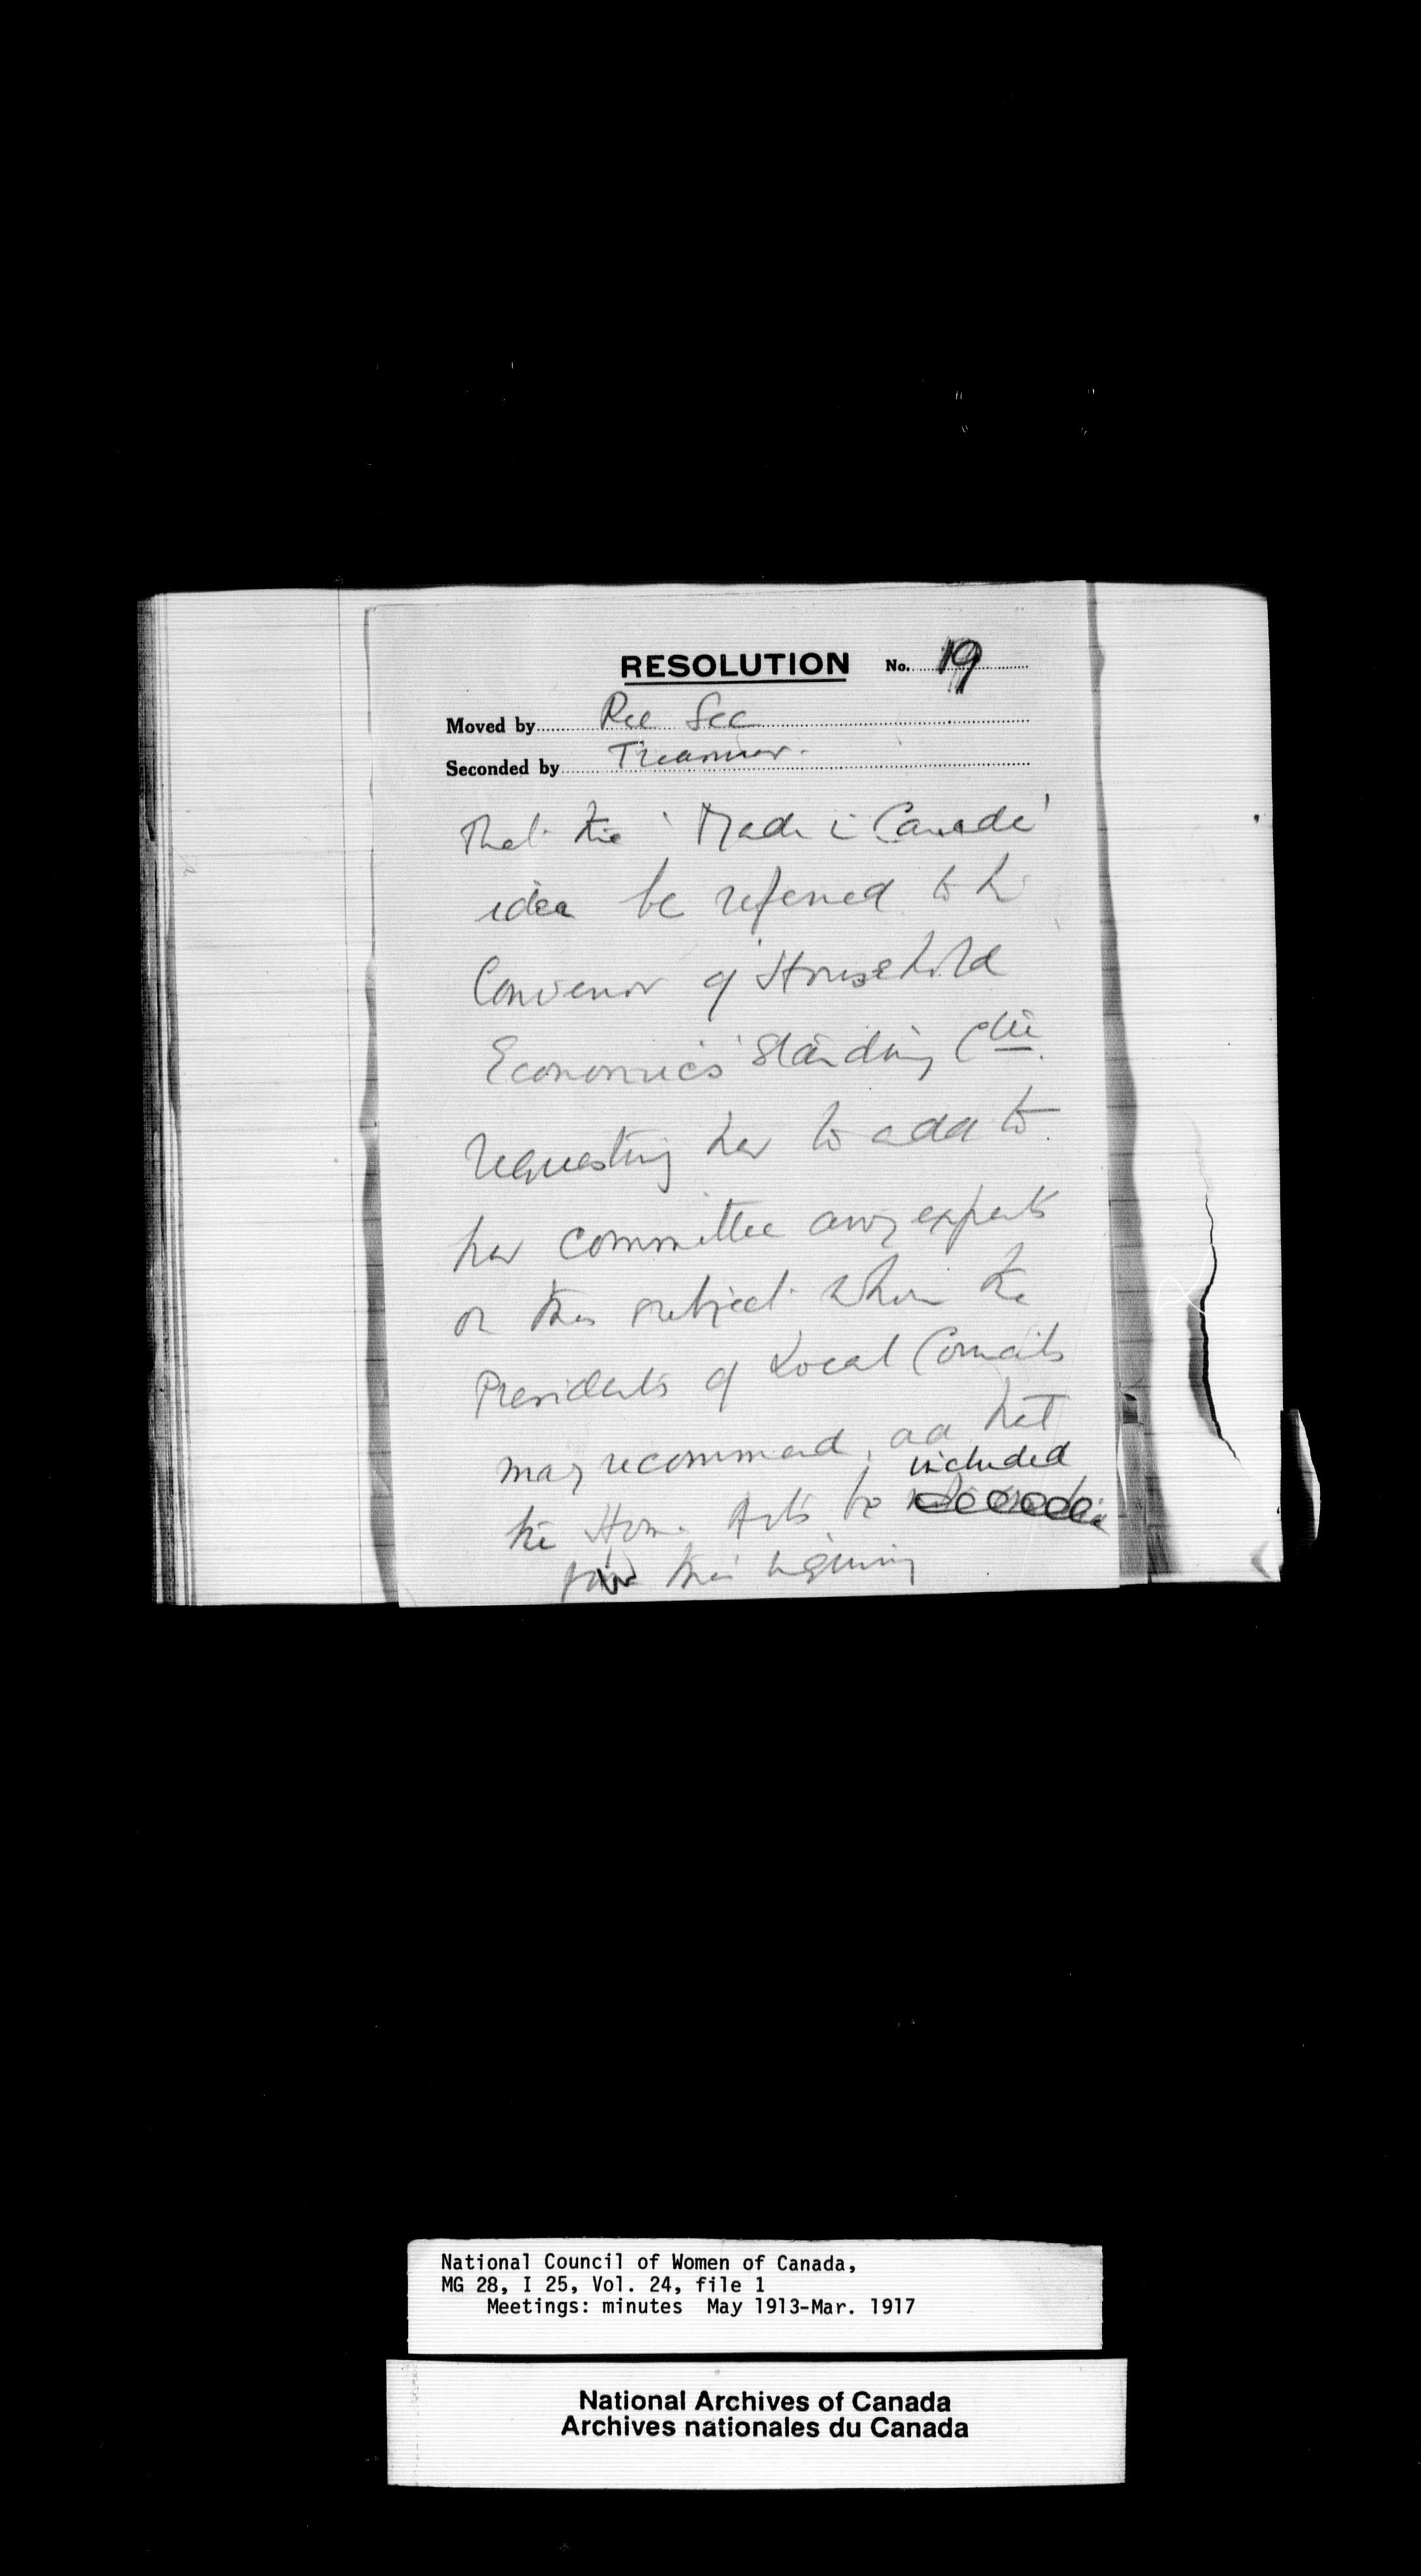 RESOLUTION No. 19
Moved by Rec Sec
Seconded by Treasurer.
That the 'Made in Canada'
idea be referred to the
Convenor of 'Household
Economics' Standing Cttee.
requesting her to add to
her committee any experts
on this subject whom the
Presidents of Local Councils
may recommend, and that
included
the Home Arts be
for this
National Council of Women of Canada,
MG 28, I 25, Vol. 24, file 1
Meetings: minutes May 1913-Mar. 1917
National Archives of Canada
Archives nationales du Canada